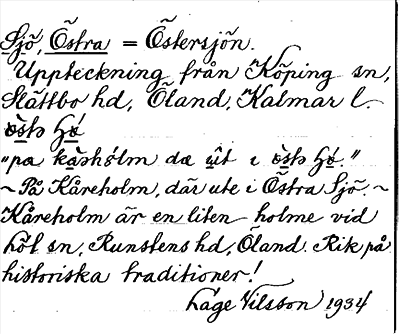 Sjö, Östra = Östersjön.
Uppteckning från Köping sn,
Slättbo hd, Öland, Kalmar l.
"på
~ På Kåreholm, där ute i Östra Sjö, ~
Kåreholm är en liten holme vid
sn, Runstens hd, Öland. Rik på
historiska traditioner!
Låge Nilsson 1934